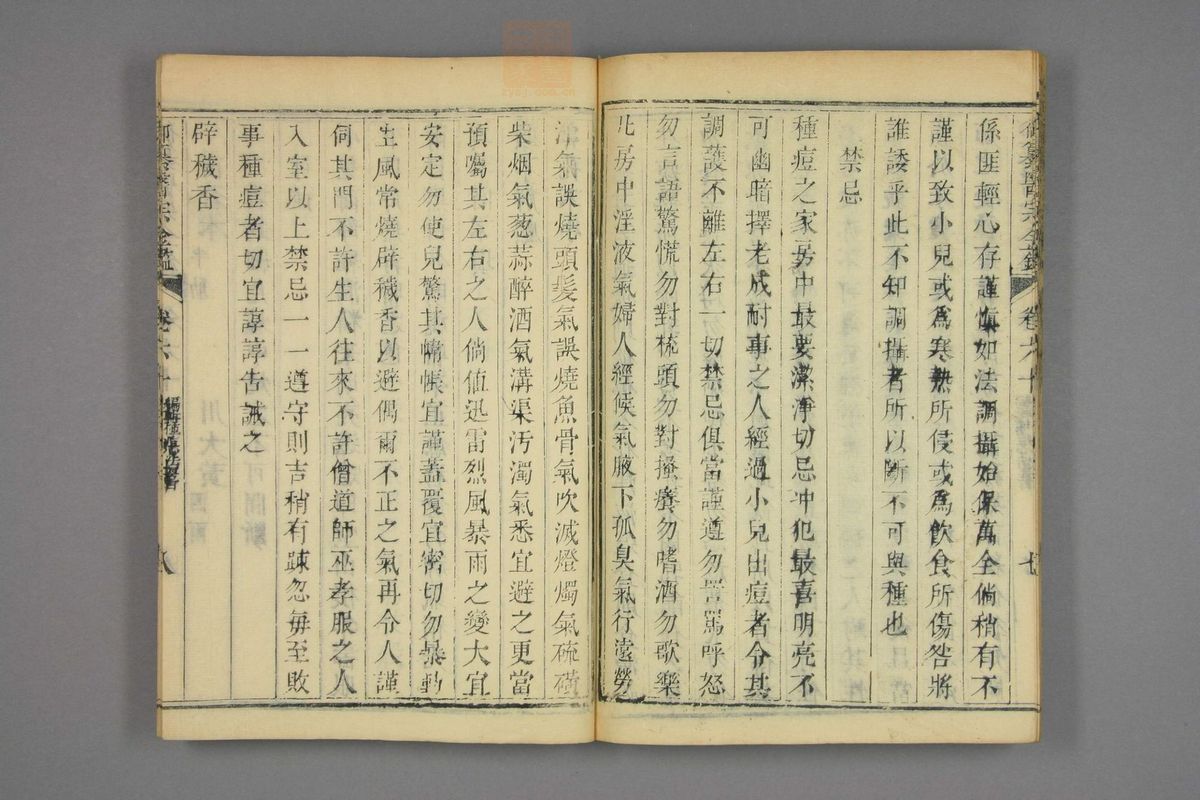 係匪輕心存謹慎如法調攝始保萬全倘稍有不
謹以致小兒或爲寒熱所侵或爲飲食所傷咎將
誰諉乎此不知調攝者所以斷不可與種也
禁忌
種痘之家房中最要潔淨切忌冲犯最喜明亮不
可幽暗擇老成耐事之人經過小兒出痘者令其
調護不離左右一切禁忌俱當謹遵勿詈罵呼怒
勿言語驚慌勿對梳頭勿對搔癢勿嗜酒勿歌樂
凡房中淫液氣婦人經候氣腋下狐臭氣行遠勞
汗氣誤燒頭髮氣誤燒魚骨氣吹滅燈燭氣硫磺
柴烟氣葱蒜醉酒氣溝渠汚濁氣悉宜避之更當
預囑其左右之人倘值迅雷烈風暴雨之變大宜
安定勿使兒驚其幃帳宜謹蓋覆宜密切勿暴動
生風常燒辟穢香以避偶爾不正之氣再令人謹
伺其門不許生人往來不許僧道師巫孝服之人
入室以上禁忌一一遵守則吉稍有踈忽每至敗
事種痘者切宜諄諄告誡之
辟穢香
御纂醫宗金鑑
卷六十
七
八
zysj.com.cn